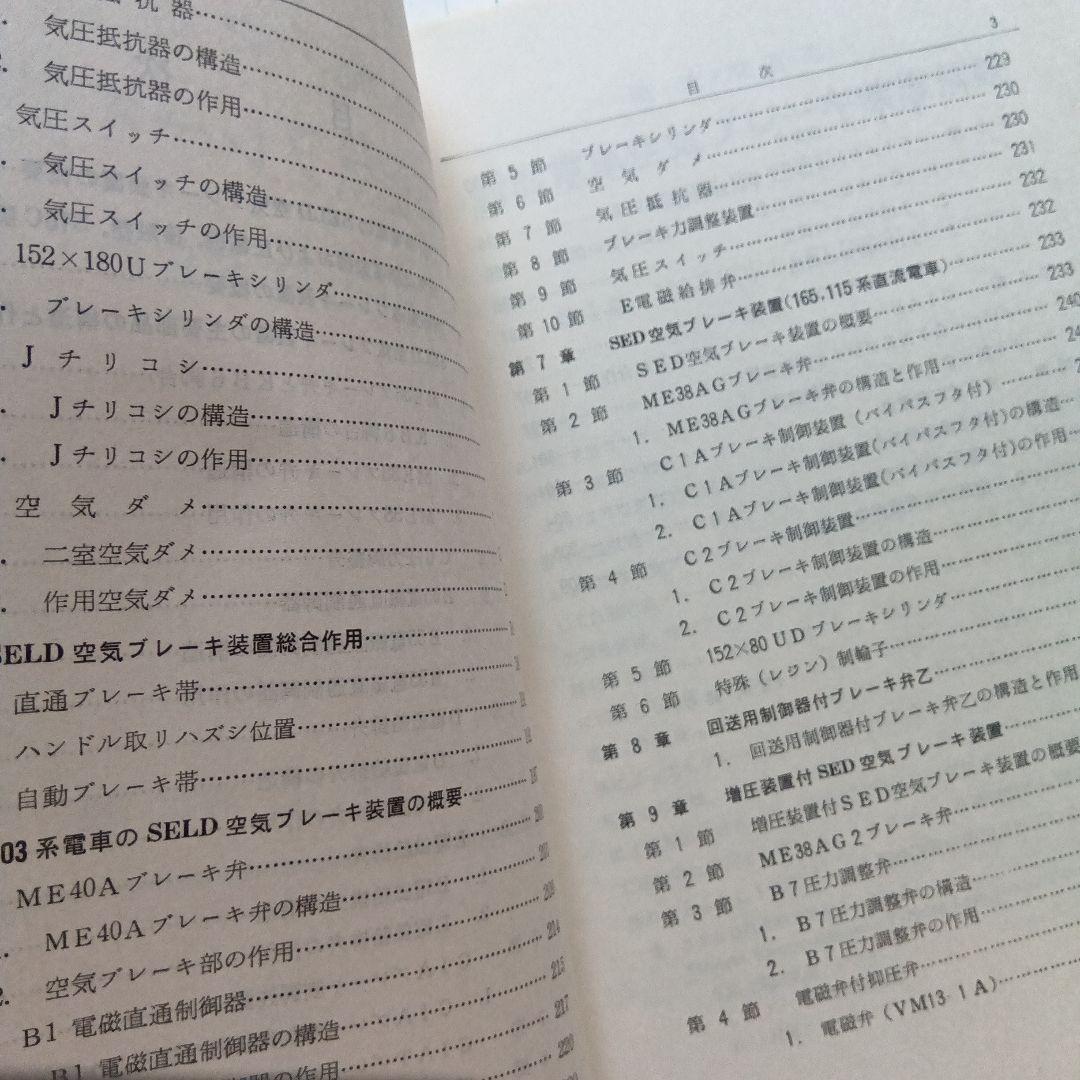 抗器
気圧抵抗器の構造
気圧抵抗器の作用
気圧スイッチ
気圧スイッチの構造
気圧スイッチの作用
152×180Uブレーキシリンダ
ブレーキシリンダの構造
Jチリコシ
Jチリコシの構造
Jチリコシの作用
空気ダメ
二室空気ダメ
作用空気ダメ
SELD空気ブレーキ装置総合作用
直通ブレーキ帯
ハンドル取リハズシ位置
自動ブレーキ帯
03系電車のSELD空気ブレーキ装置の概要
ME40Aブレーキ弁
ME40Aブレーキ弁の構造
2. 空気ブレーキ部の作用……214
B1電磁直通制御器……215
B1電磁直通制御器の構造……217
……220
3
目次
第5節 ブレーキシリンダ……229
第6節 空気ダメ……230
第7節 気圧抵抗器……230
第8節 ブレーキ力調整装置……231
第9節 気圧スイッチ……232
第10節 E電磁給排弁……232
第7章 SED空気ブレーキ装置(165,115系直流電車)……233
第1節 SED空気ブレーキ装置の概要……233
第2節 ME38AGブレーキ弁……240
1. ME38AGブレーキ弁の構造と作用
第3節 C1Aブレーキ制御装置(バイパスフタ付)
1. C1Aブレーキ制御装置(バイパスフタ付)の構造
2. C1Aブレーキ制御装置(バイパスフタ付)の作用
第4節 C2ブレーキ制御装置
1. C2ブレーキ制御装置の構造
2. C2ブレーキ制御装置の作用
第5節 152×80UDブレーキシリンダ
第6節 特殊(レジン)制輪子
第8章 回送用制御器付ブレーキ弁乙
1. 回送用制御器付ブレーキ弁乙の構造と作用
第9章 増圧装置付SED空気ブレーキ装置
第1節 増圧装置付SED空気ブレーキ装置の概要
第2節 ME38AG2ブレーキ弁
第3節 B7圧力調整弁
1. B7圧力調整弁の構造
2. B7圧力調整弁の作用
第4節 電磁弁付抑圧弁
1. 電磁弁(VM13-1A)